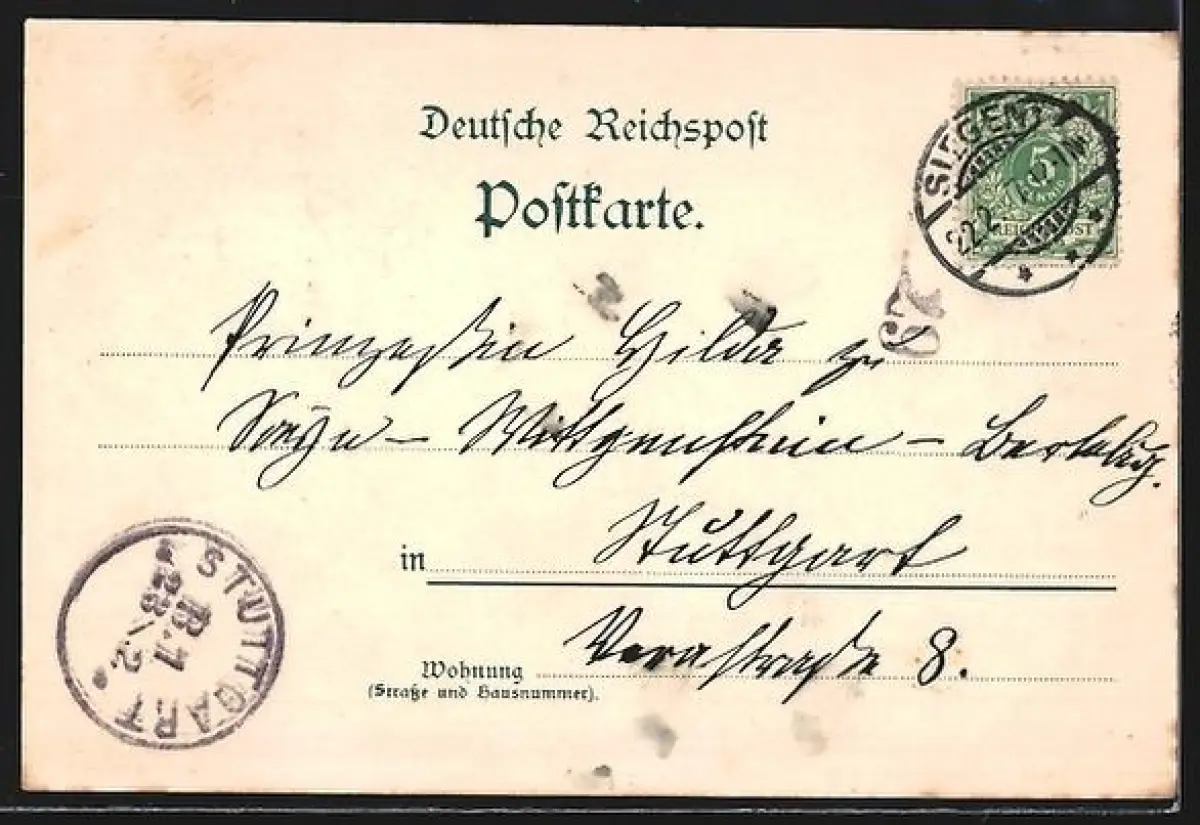 Deutsche Reichspost
Postkarte.
SIEGEN
22.2.
5
REICHSPOST
67
Prinzessin Hilda zu
Sayn-Wittgenstein-Berleburg.
in Stuttgart
Wohnung Verastraße 8.
(Straße und Hausnummer).
STUTTGART
B.7
23\2